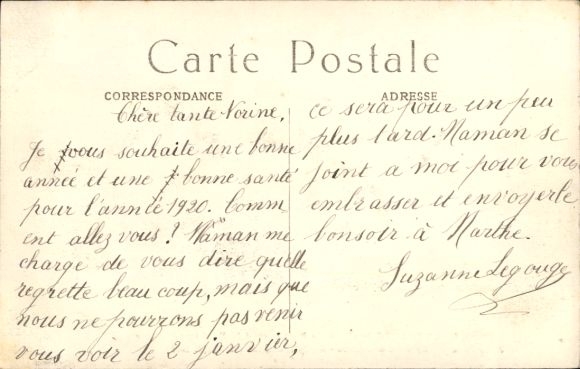 Carte Postale
CORRESPONDANCE
ADRESSE
Chère tante Norine,
Je vous souhaite une bonne
année et une bonne santé
pour l'année 1920. Comm
ent allez vous? Maman me
charge de vous dire quelle
regrette beau coup, mais que
nous ne pourrons pas venir
vous voir le 2 janvier,
ce sera pour un peu
plus tard. Maman se
joint a moi pour vous
embrasser et envoyer le
bonsoir à Marthe.
Suzanne Legouge